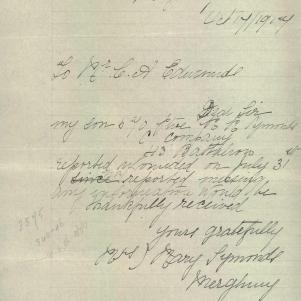 Oct 4/1917
To Mr C. A. Edwards
Dear Sir
my son Pte Symonds
C Company
43 Battalion
reported wounded on July 31st
since reported missing
any information would be
thankfully received
yours gratefully
Mrs Mary Symonds